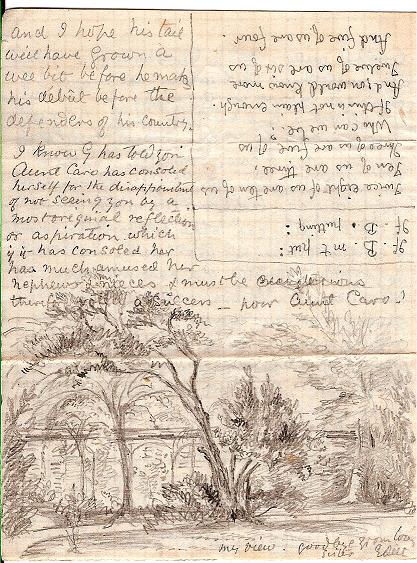 and I hope his tail
will have grown a
wee bit before he makes
his debût before the
defenders of his country.
I know G has told you
Aunt Caro has consoled
herself for the disappointment
of not seeing you by a
most original reflection
or aspiration which
if it has consoled her
has much amused her
nephews & nieces & must be
poor Aunt Caro!
my view. goodbye
If B. mt put:
If. B. putting:
Twice eight of us are ten of us
Ten of us are three.
Three of us are five of us
Who can we be?
If this is not plain enough
And you would know more
Twelve of us are six of us
And five of us are four.